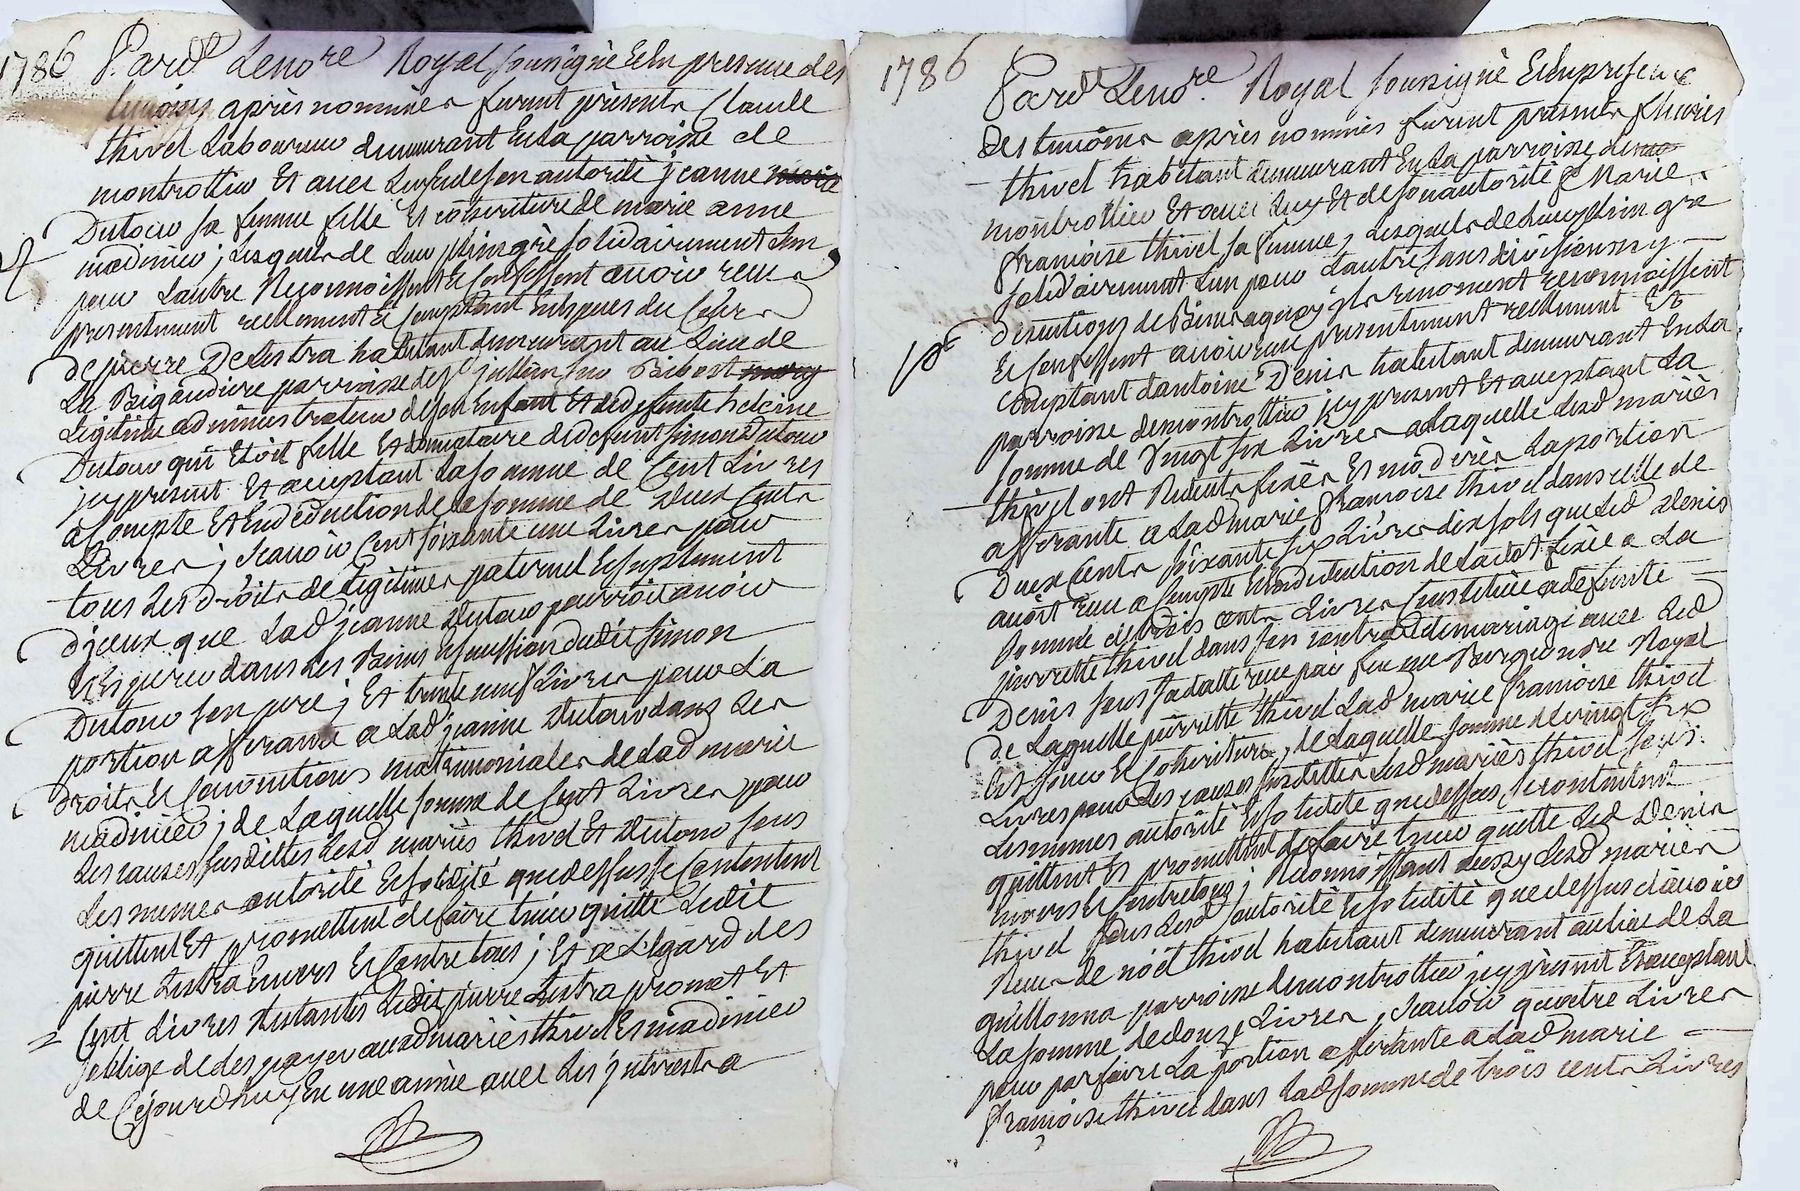 1786
Pard.t Le no.re Royal soussigné Et En presence des
temoins après nommés furent présents Claude
thivel Laboureur demeurant En la parroisse de
montrottier Et avec Luy Et de son autorité jeanne
Dutour sa femme fille Et cohéritière de marie anne
madinier ; Lesquels de Leur plein gré solidairement L'un
pour L'autre Reconnoissent Et Confessent avoir reçu
presentement reellement Et Comptant En Especes du Cours
De pierre De Lestra habitant demeurant au Lieu de
La Bigaudiere parroisse de s.t jullien sur Bibost
Légitime administrateur de son Enfant Et de defunte
Dutour qui Etoit fille Et donataire dud defunt simon Dutour
jcy present Et acceptant La somme de Cent Livres
a Compte Et En déduction de la somme de Deux Cents
Livres ; sçavoir Cent soixante une Livres pour
tous Les Droits de Légitimes paternel Et suplement
D'jceux que Lad jeanne Dutour pourroit avoir
dans Les Biens Et succession dudit simon
Dutour son pere ; Et trente neuf Livres pour La
portion afferante a Lad jeanne Dutour dans Les
Droits Et Conventions matrimoniales de Lad marie
madinier ; de Laquelle somme de Cent Livres pour
Les causes susdittes Lesd mariés thivel Et Dutour sous
Les memes autorité Et solidité que dessus se Contentent
quittent Et promettent de faire tenir quitte Ledit
pierre Lestra Envers Et Contre tous ; Et a L'Egard des
Cent Livres Restantes Ledit pierre Lestra promet Et
s'oblige de Les payer auxd mariés thivel Et madinier
de Cejourd'huy En une année avec Les jnterests a
1786
Pard.t Le no.re Royal soussigné Et En presence
Des temoins après nommés furent présents
thivel habitant demeurant En La parroisse de
montrottier Et avec Luy Et de son autorité Marie
françoise thivel sa femme, Lesquels de Leur plein gré
solidairement L'un pour L'autre sans division ny
Discution de Biens a quoy jls renoncent reconnoissent
Et Confessent avoir reçu presentement reellement Et
Comptant d'antoine Denis habitant demeurant En La
parroisse de montrottier jcy present Et acceptant La
somme de Vingt six Livres a Laquelle Lesd mariés
thivel ont Reduits fixés Et modérés La portion
afferante a Lad marie françoise thivel dans celle de
Deux Cents soixante six Livres dix sols que Led Denis
avoit reçu a Compte Et En déduction de La dot fixée a La
somme de trois cents Livres Constituée a defunte
pierrette thivel dans son contrat de mariage avec Led
Denis sous sa datte reçu par feu me Bergier no.re Royal
De Laquelle pierrette thivel Lad marie françoise thivel
Est soeur Et Cohéritiere, de Laquelle somme de vingt six
Livres pour Les causes susdittes Lesd mariés thivel sous
Les memes autorité Et solidité que dessus se contentent
quittent Et promettent de faire tenir quitte Led Denis
Envers Et Contre tous ; Reconnoissant aussy Lesd mariés
thivel sous Lesd autorité Et solidité que dessus d'avoir
Reçu de noël thivel habitant demeurant au Lieu de La
guillonna parroisse de montrottier jcy present Et acceptant
La somme de douze Livres, sçavoir quatre Livres
pour parfaire La portion afferante a Lad marie
françoise thivel dans Lad somme de trois cents Livres